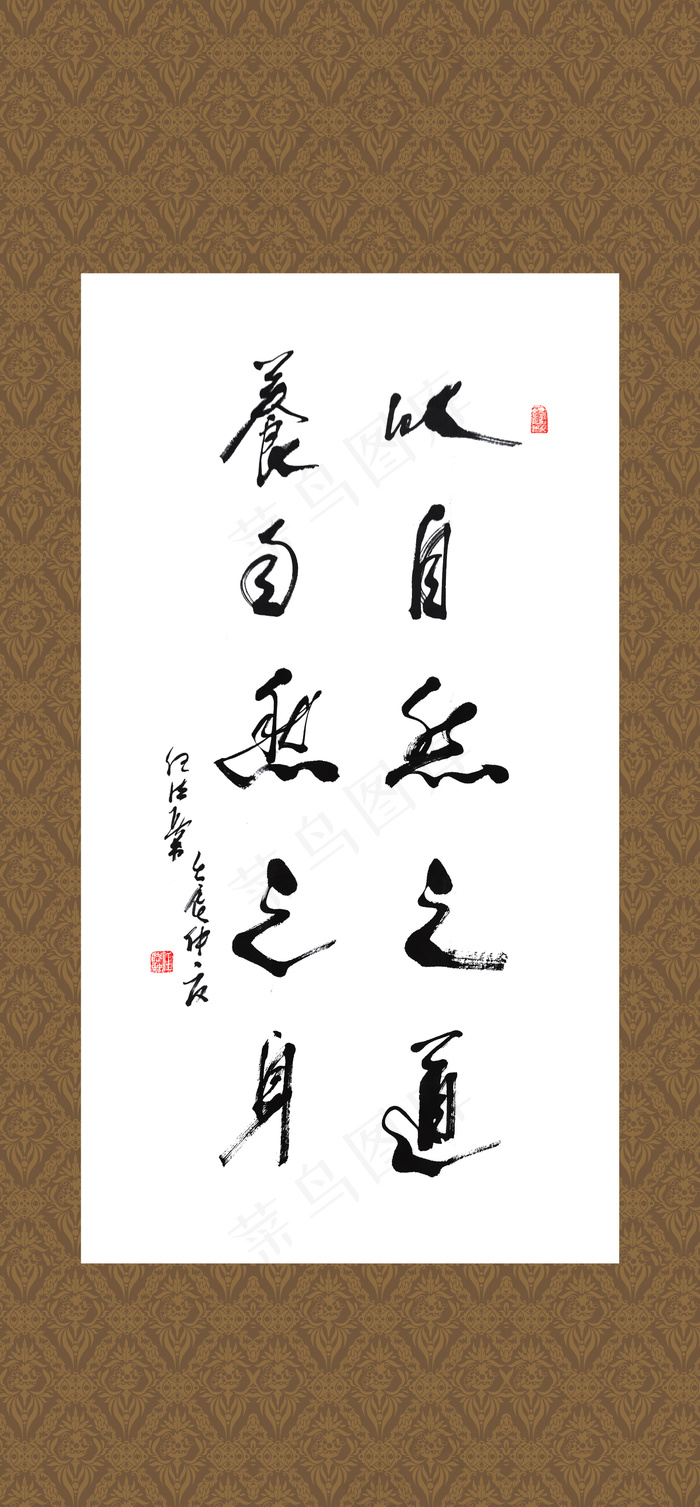 以自然之道
養自然之身
仲夏
任法融
菜鸟图库
菜鸟图库
菜鸟图库